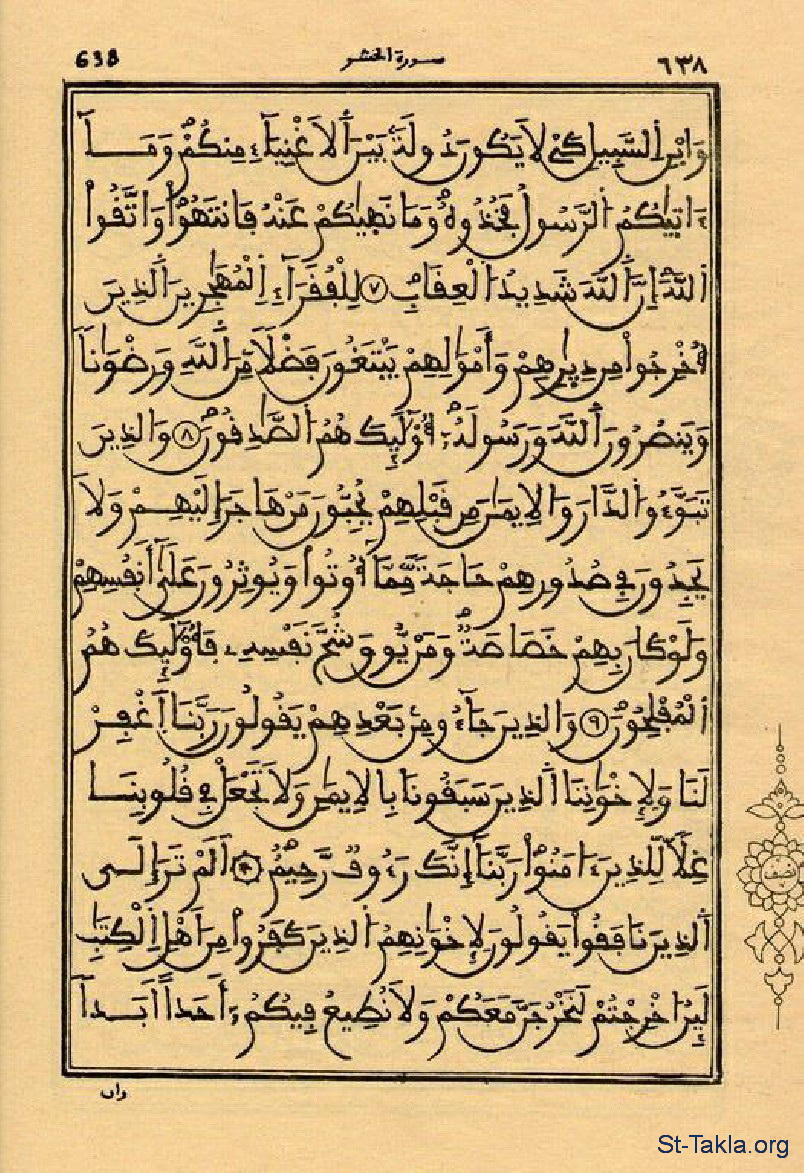 638 سورة الحشر ٦٣٨
وَابْنِ اِ۬لسَّبِيلِ كَےْ لَا يَكُونَ دُولَةَۢ بَيْنَ اَ۬لَاغْنِيَآءِ مِنكُمْ وَمَآ
ءَات۪يٰكُمُ اُ۬لرَّسُولُ فَخُذُوهُ وَمَا نَه۪يٰكُمْ عَنْهُ فَانتَهُواْ وَاتَّقُواْ
اُ۬للَّهَ إِنَّ اَ۬للَّهَ شَدِيدُ اُ۬لْعِقَابِ ٧ لِلْفُقَرَآءِ اِ۬لْمُهَٰجِرِينَ اَ۬لذِينَ
أُخْرِجُواْ مِن دِيٰ۪رِهِمْ وَأَمْوَٰلِهِمْ يَبْتَغُونَ فَضْلاٗ مِّنَ اَ۬للَّهِ وَرِضْوَٰناٗ
وَيَنصُرُونَ اَ۬للَّهَ وَرَسُولَهُۥٓ أُوْلَٰٓئِكَ هُمُ اُ۬لصَّٰدِقُونَ ٨ وَالذِينَ
تَبَوَّءُو اُ۬لدَّارَ وَالِايمَٰنَ مِن قَبْلِهِمْ يُحِبُّونَ مَنْ هَاجَرَ إِلَيْهِمْ وَلَا
يَجِدُونَ فِے صُدُورِهِمْ حَاجَةٗ مِّمَّآ أُوتُواْ وَيُوثِرُونَ عَلَىٰٓ أَنفُسِهِمْ
وَلَوْ كَانَ بِهِمْ خَصَاصَةٞ وَمَنْ يُّوقَ شُحَّ نَفْسِهِۦ فَأُوْلَٰٓئِكَ هُمُ
اُ۬لْمُفْلِحُونَ ٩ وَالذِينَ جَآءُو مِنۢ بَعْدِهِمْ يَقُولُونَ رَبَّنَا اَ۪غْفِرْ
لَنَا وَلِإِخْوَٰنِنَا اَ۬لذِينَ سَبَقُونَا بِالِايمَٰنِ وَلَا تَجْعَلْ فِے قُلُوبِنَا
غِلّاٗ لِّلذِينَ ءَامَنُواْ رَبَّنَآ إِنَّكَ رَءُوفٞ رَّحِيمٌ ١٠ اَلَمْ تَرَ إِلَى
اَ۬لذِينَ نَافَقُواْ يَقُولُونَ لِإِخْوَٰنِهِمُ اُ۬لذِينَ كَفَرُواْ مِنَ اَهْلِ اِ۬لْكِتَٰبِ
لَئِنُ ا۟خْرِجْتُمْ لَنَخْرُجَنَّ مَعَكُمْ وَلَا نُطِيعُ فِيكُمُۥٓ أَحَداً اَبَداٗ
وإن
نصف
St-Takla.org